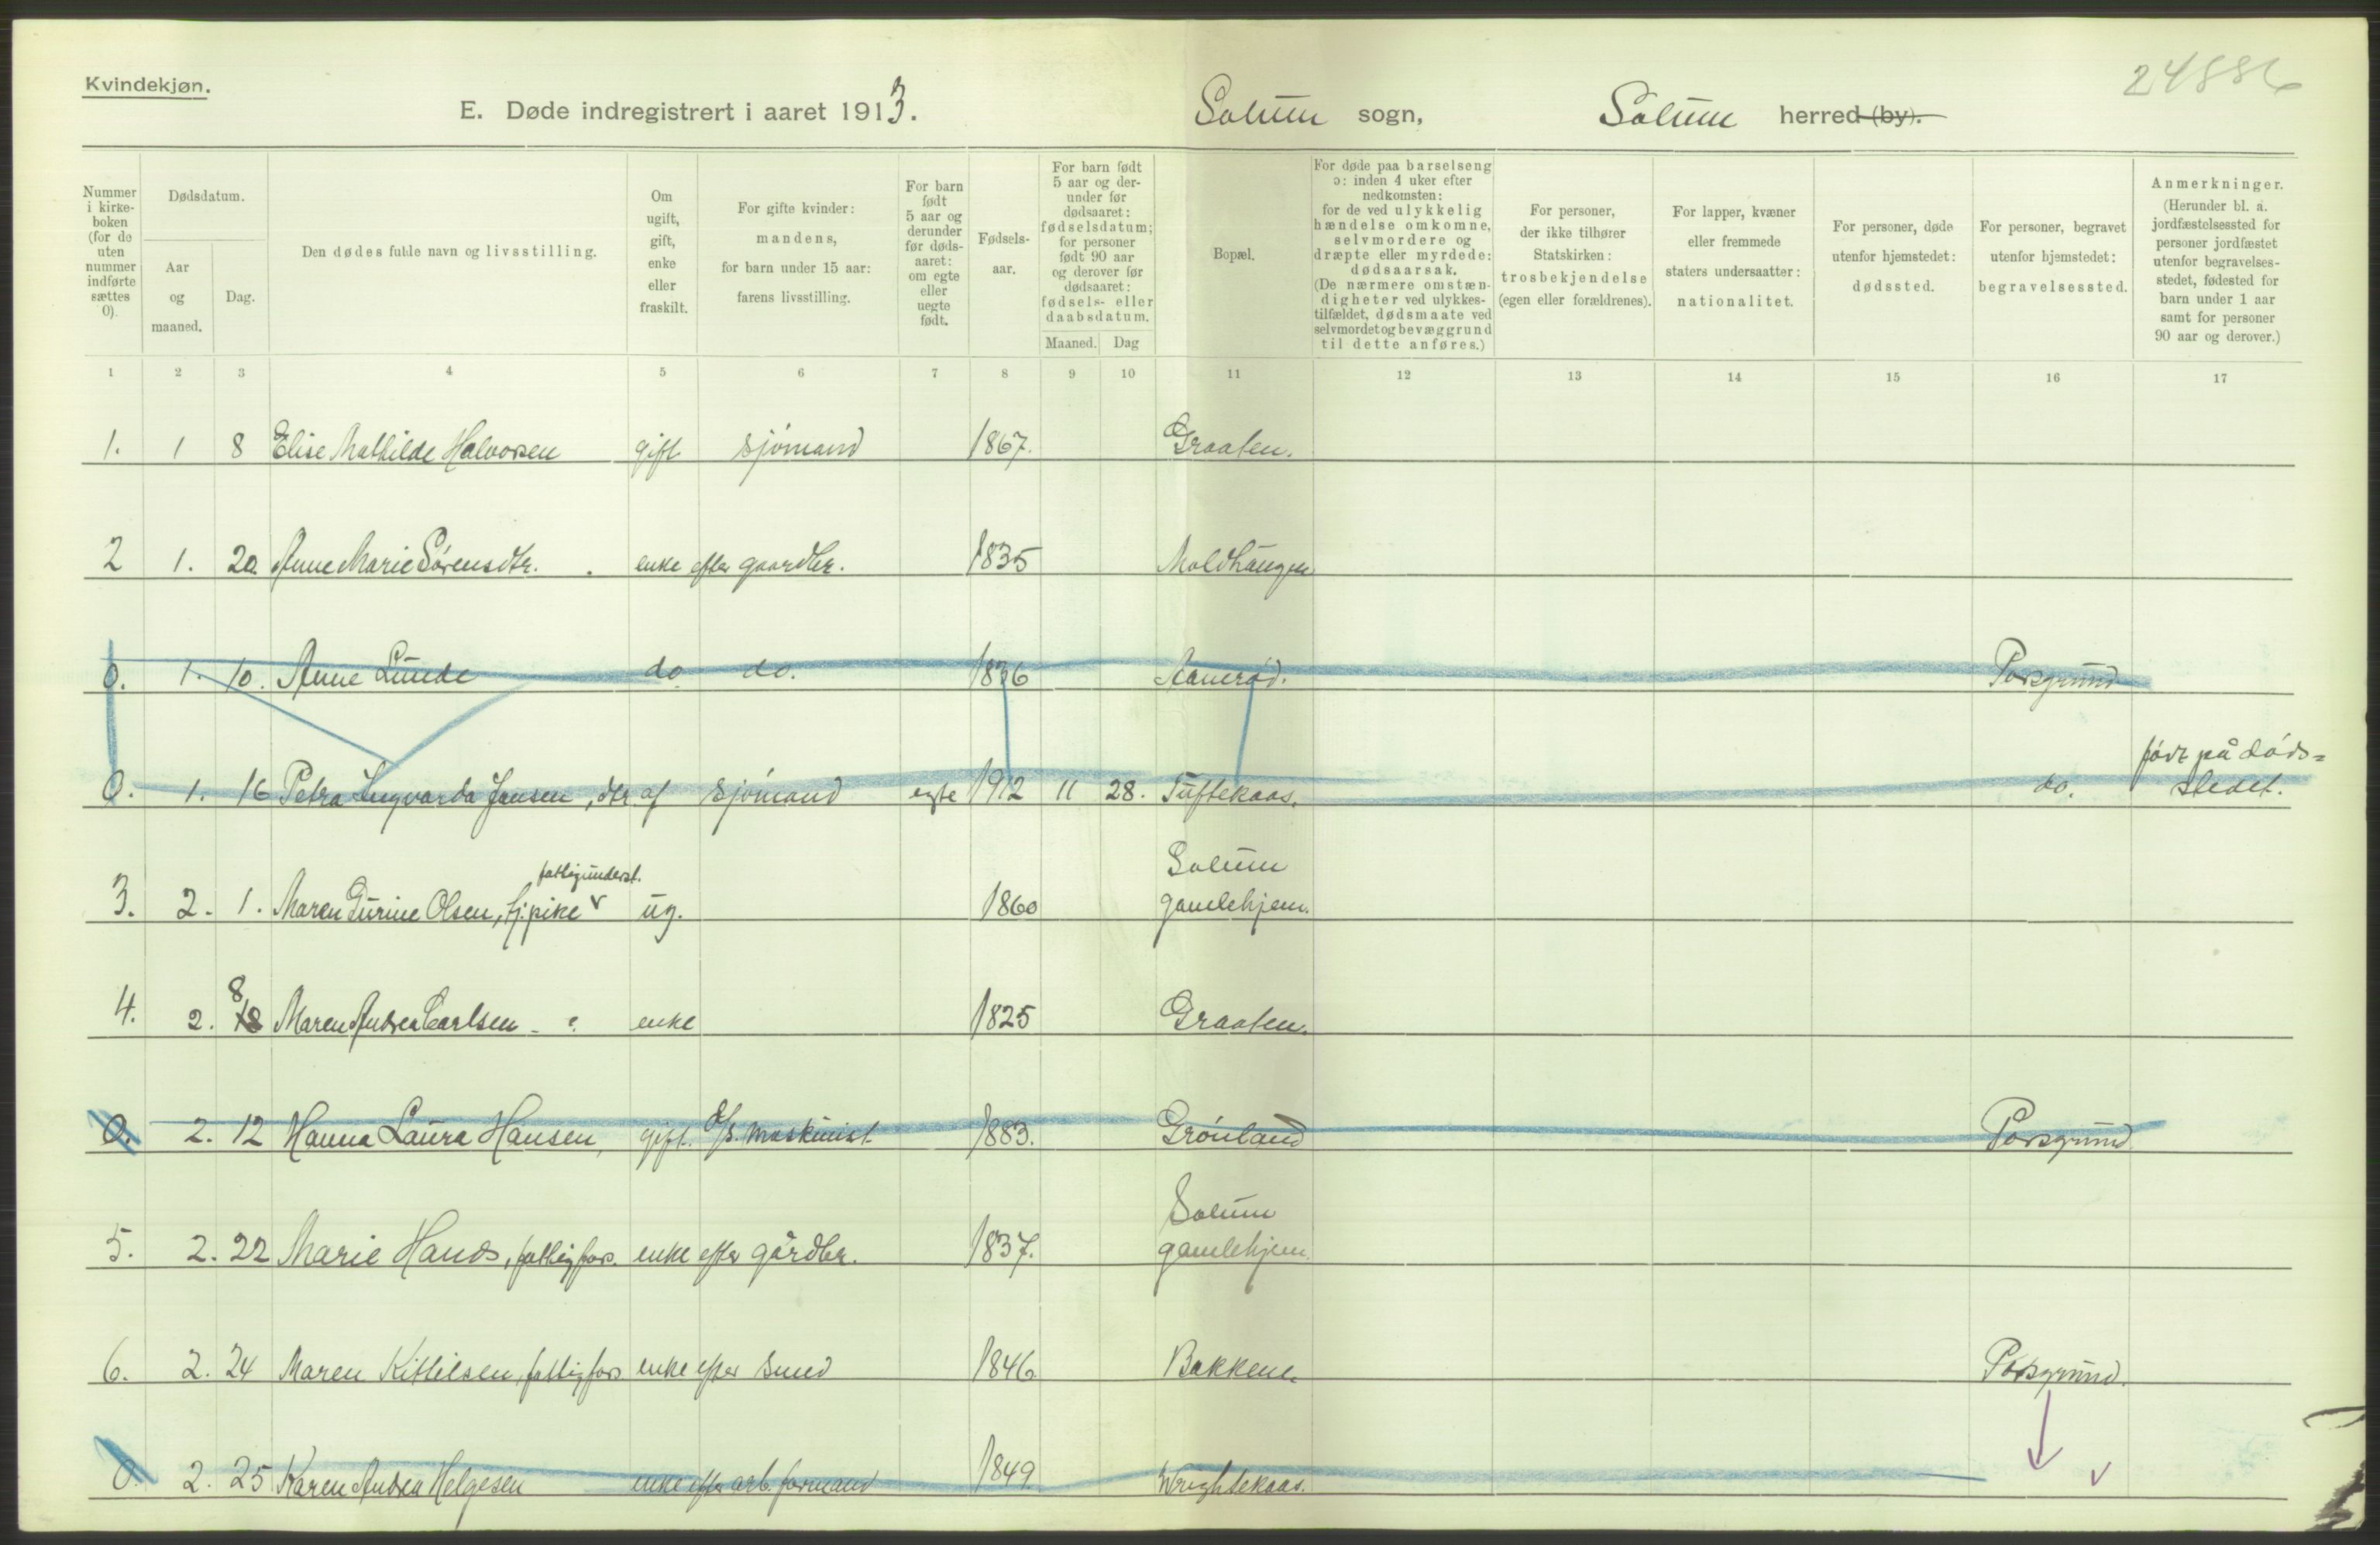 24886
Kvindekjøn.
E. Døde indregistrert i aaret 1913. Solum sogn, Solum herred (by).
Nummer i kirke-boken (for de uten nummer indførte sættes 0).
Dødsdatum.
Aar og maaned.
Dag.
Den dødes fulde navn og livsstilling.
Om ugift, gift, enke eller fraskilt.
For gifte kvinder: mandens, for barn under 15 aar: farens livsstilling.
For barn født 5 aar og derunder før døds-aaret: om egte eller uegte født.
Fødsels-aar.
For barn født 5 aar og der-under før dødsaaret: fødselsdatum; for personer født 90 aar og derover før dødsaaret: fødsels- eller daabsdatum.
Maaned. Dag
Bopæl.
For døde paa barselseng ɔ: inden 4 uker efter nedkomsten: for de ved ulykkelig hændelse omkomne, selvmordere og dræpte eller myrdede: dødsaarsak. (De nærmere omstæn-digheter ved ulykkes-tilfældet, dødsmaate ved selvmordet og bevæggrund til dette anføres.)
For personer, der ikke tilhører Statskirken: trosbekjendelse (egen eller forældrenes).
For lapper, kvæner eller fremmede staters undersaatter: nationalitet.
For personer, døde utenfor hjemstedet: dødssted.
For personer, begravet utenfor hjemstedet: begravelsessted.
Anmerkninger. (Herunder bl. a. jordfæstelsessted for personer jordfæstet utenfor begravelses-stedet, fødested for barn under 1 aar samt for personer 90 aar og derover.)
1 2 3 4 5 6 7 8 9 10 11 12 13 14 15 16 17
1. 1 8 Elise Mathilde Halvorsen gift sjömand 1867. Graaten.
2 1. 20. Anne Marie Sörensdtr. enke efter gaardbr. 1835 Moldhaugen
0. 1. 10. Anne Lunde do do. 1836 Aanerød. Porsgrund
født på døds=
0. 1. 16 Petra Ingvarda Jansen, dtr af sjömand egte 1912 11 28. Tuftekaas. do. stedet.
fattigunderst. Solum
3. 2. 1. Maren Gurine Olsen, tj.pike v ug. 1860 gamlehjem.
8
4. 2. 18 Maren Andrea Carlsen enke 1825 Graaten.
0. 2. 12 Hanna Laura Hansen, gift. d/s. maskinist 1883. Grönland Porsgrund
Solum
5. 2. 22 Marie Hansd, fattigfors. enke efter gårdbr. 1837. gamlehjem.
6. 2. 24 Maren Kittilsen, fattigfors enke efter smed 1846. Bakkene Porsgrund.
0. 2. 25 Karen Andrea Helgesen enke efter arb. formand 1849. Wrightekaas.